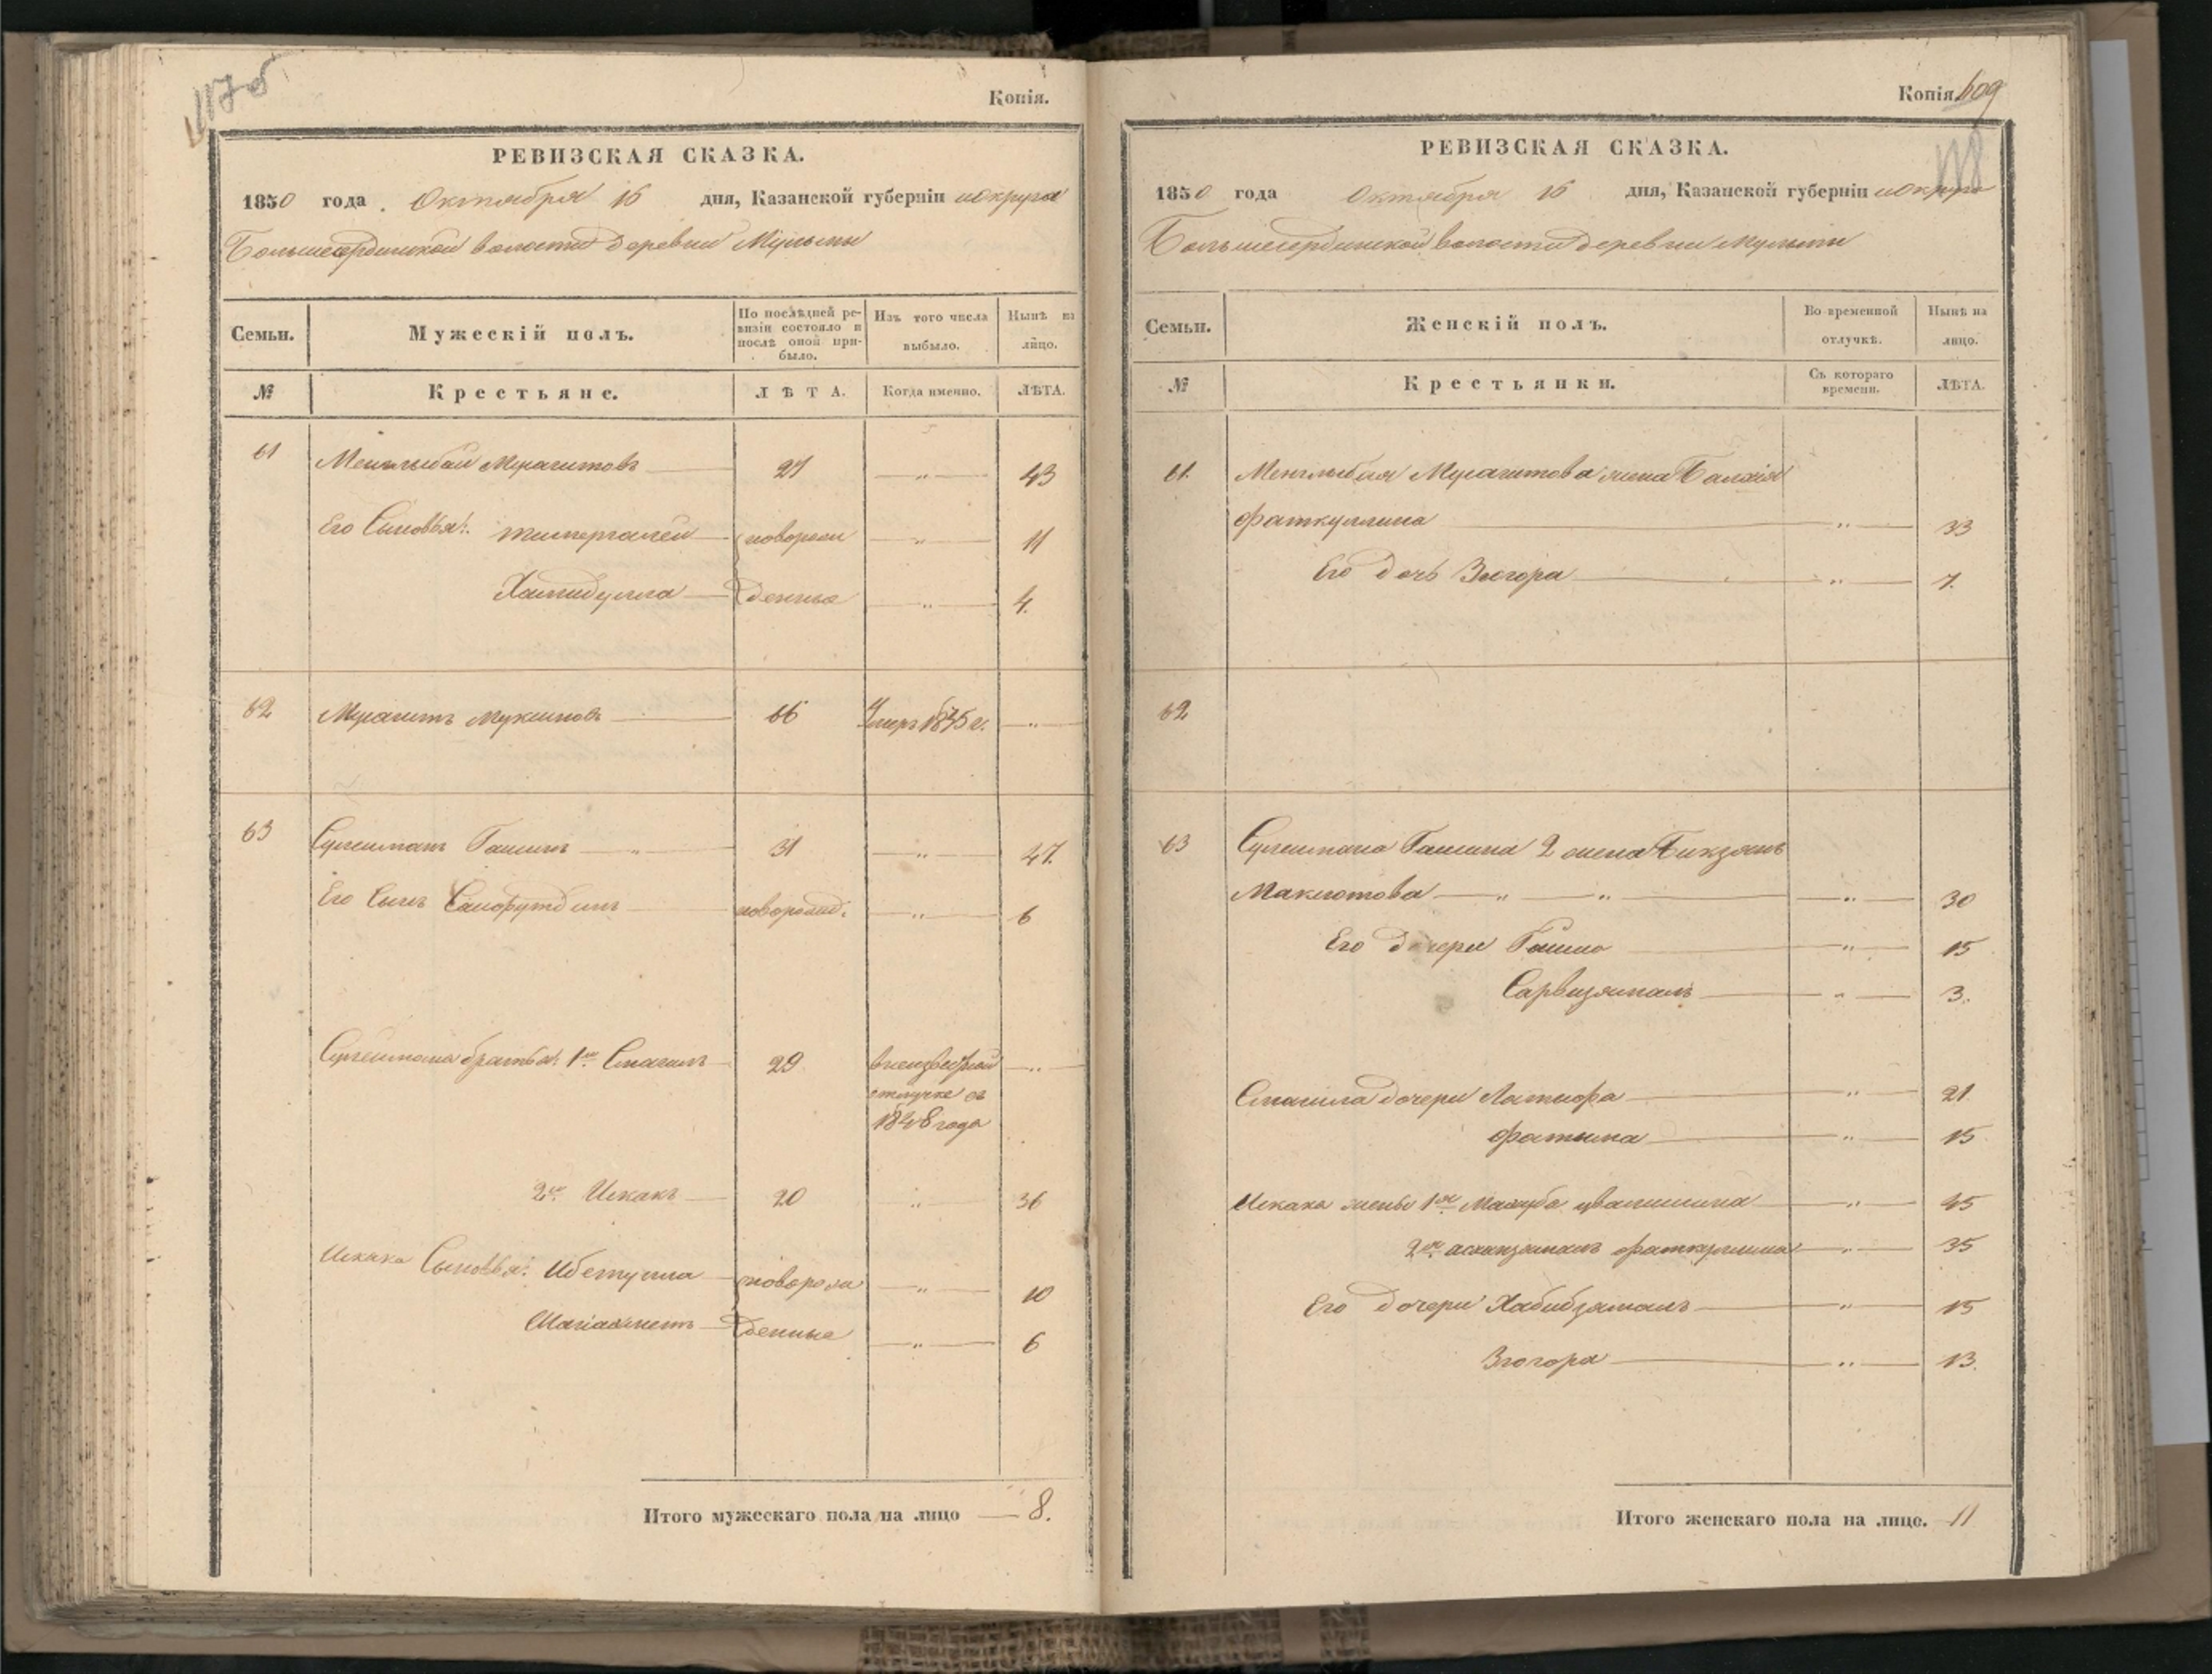 117 об
Копія.
РЕВИЗСКАЯ СКАЗКА.
1850 года Октября 16 дня, Казанской губерніи и округа
Большесердинской волости деревни Мульмы
Семьи. Мужескій полъ. По послѣдней ревизіи состояло и послѣ оной прибыло. Изъ того числа выбыло. Нынѣ на лицо.
№ Крестьяне. ЛѢТА. Когда именно. ЛѢТА.
61 Менглыбай Мурагитовъ 27 — " — 43
Его Сыновья: Тимергалей новорож — " — 11
Хамидулла денные — " — 4.
62 Мурагитъ Муксиновъ 66 Умеръ 1835 г. — " —
63 Сулейманъ Гашинъ — " — 31 — " — 47.
Его Сынъ новорожд: — " — 6
Сулеймана братья: 1й Смагилъ 29 в неизвестной — " —
отлучке съ
1848 года
2й Искакъ 20 " 36
Искака Сыновья: Ибетулла новорож — " — 10
Шагіахметъ денные — " — 6
Итого мужескаго пола на лицо — 8.
Копія. 609
118
РЕВИЗСКАЯ СКАЗКА.
1850 года Октября 16 дня, Казанской губерніи и округа
Большесердинской волости деревни Мульмы
Семьи. Женскій полъ. Во временной отлучкѣ. Нынѣ на лицо.
№ Крестьянки. Съ котораго времени. ЛѢТА.
61. Менглыбая Мурагитова жена
Фаткуллина — " — 33
Его дочь Зюгора — " — 7.
62
63 Сулеймана Гашина 2 жена
Макютова — " — " — — " — 30
Его дочери — " — 15
Сарвизямалъ — " — 3.
Смагила дочери Латифа — " — 21
Фатыма — " — 15
Искака жены 1я — " — 45
2я Фаткуллина — " — 35
Его дочери Хабибзямалъ — " — 15
Зюгора — " — 13.
Итого женскаго пола на лицо. 11